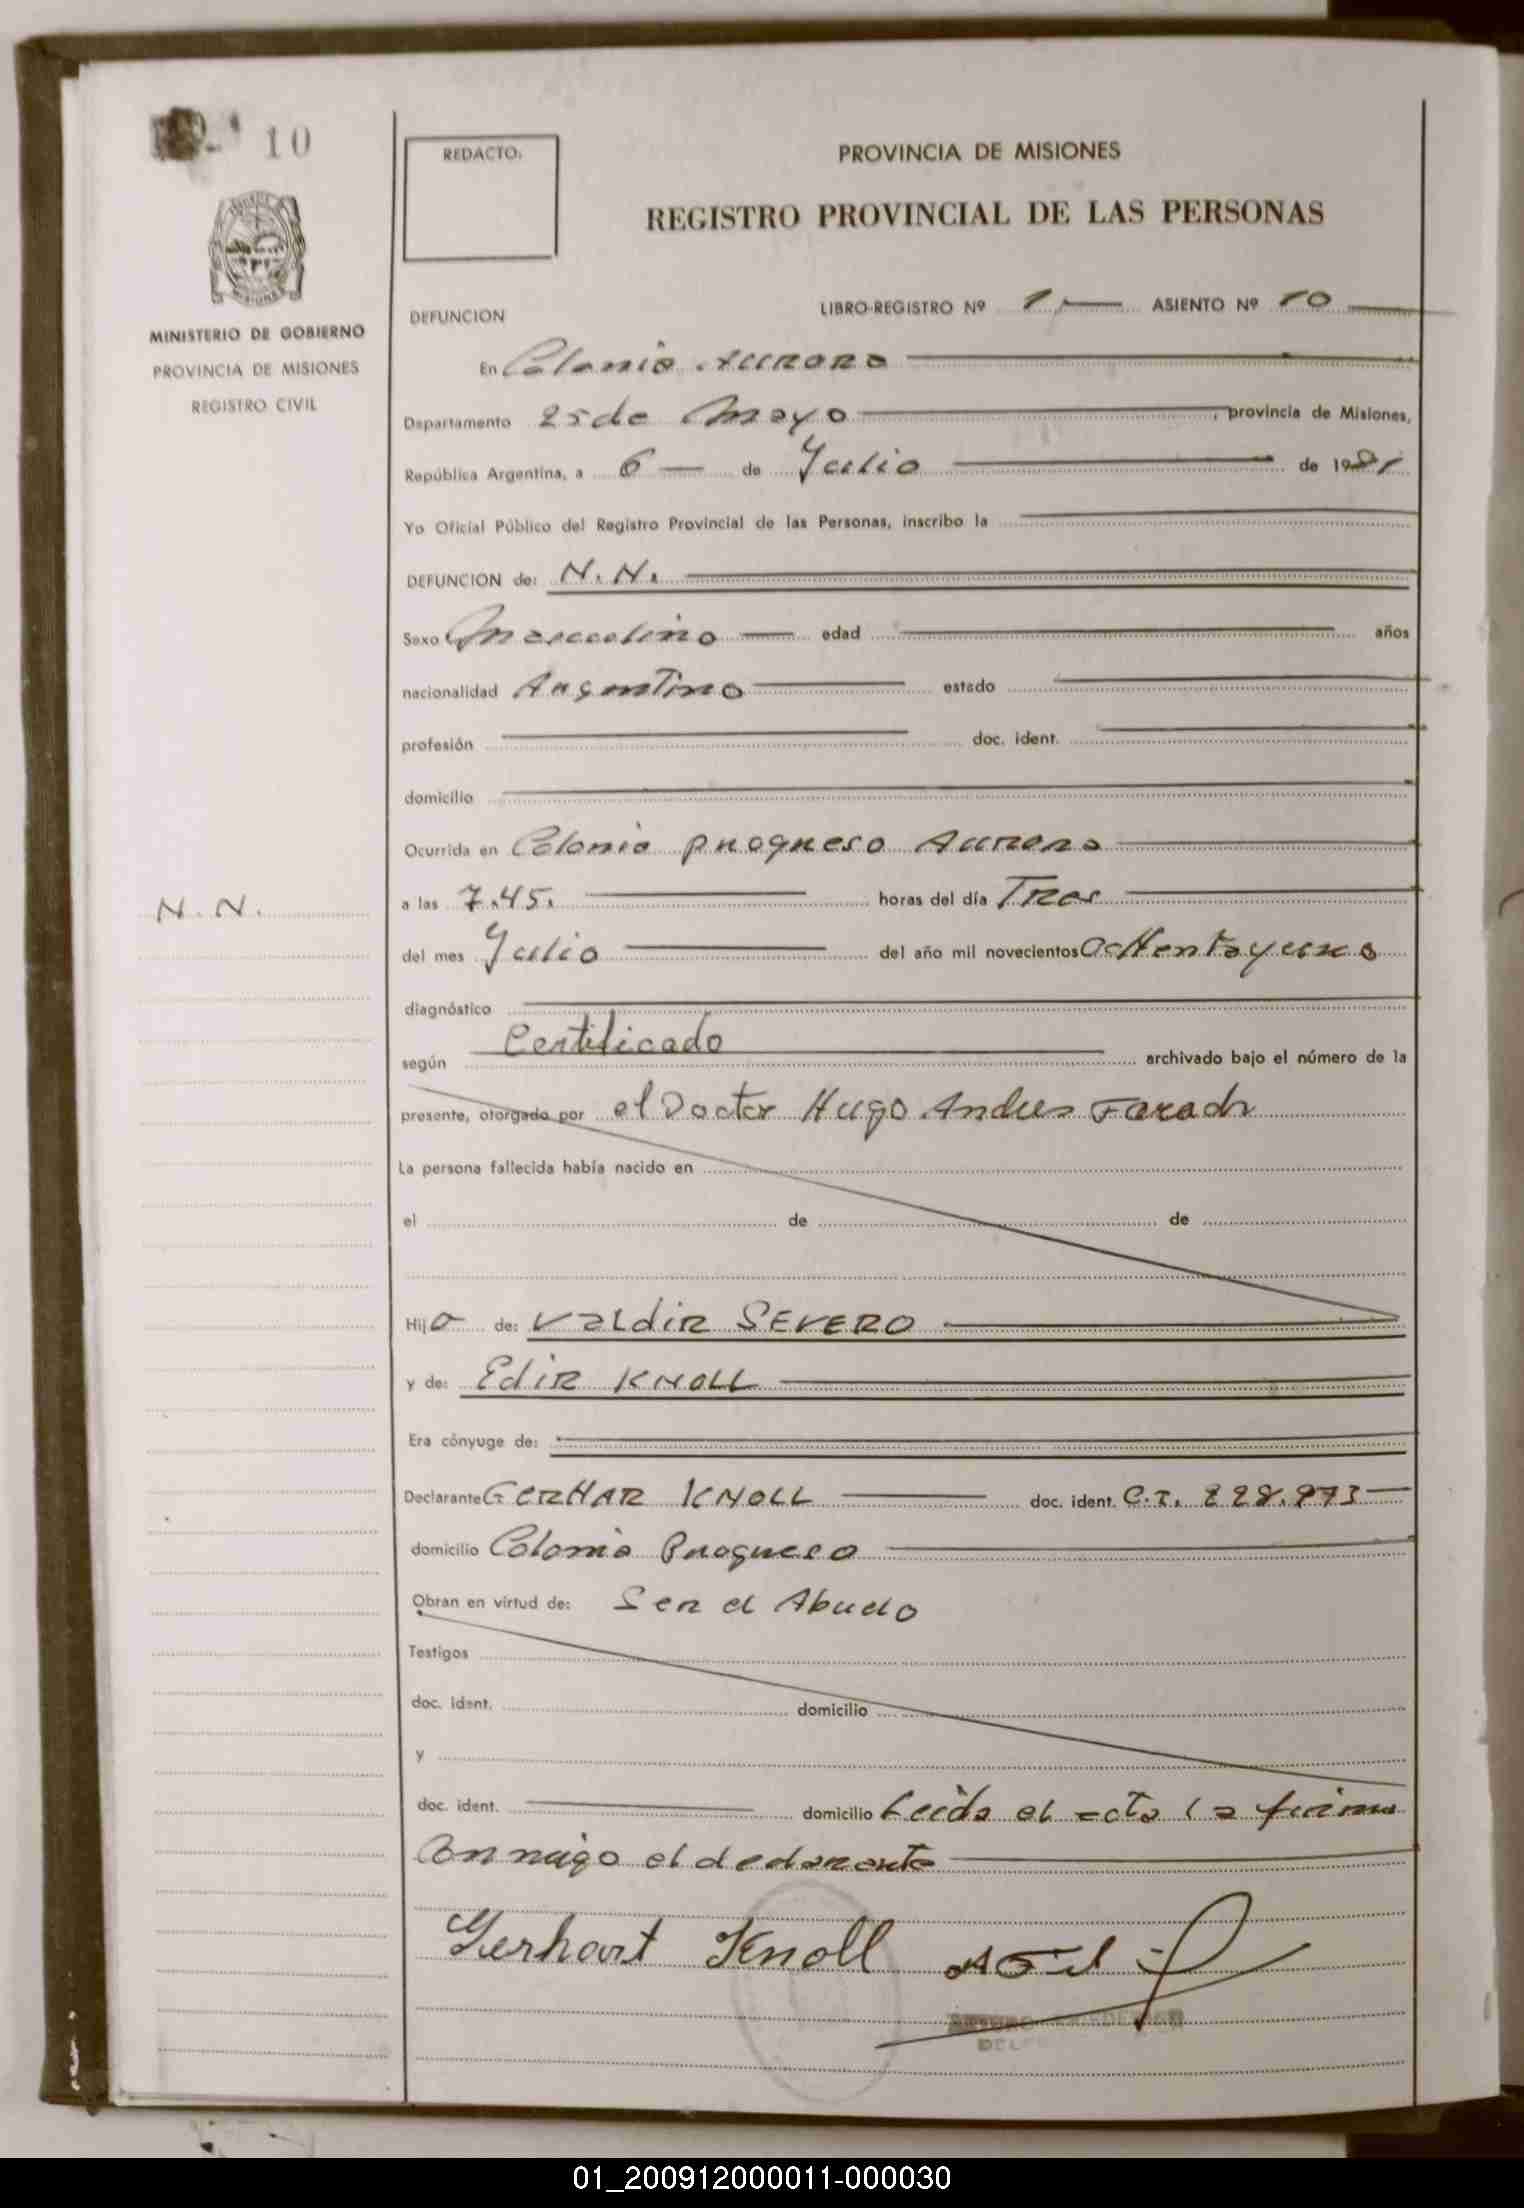 10
REDACTO:
PROVINCIA DE MISIONES
REGISTRO PROVINCIAL DE LAS PERSONAS
MISIONES
MINISTERIO DE GOBIERNO
PROVINCIA DE MISIONES
REGISTRO CIVIL
DEFUNCION
LIBRO-REGISTRO Nº 1 ASIENTO Nº 10
En Colonia Aurora
Departamento 25 de Mayo, provincia de Misiones,
República Argentina, a 6 de Julio de 1981
Yo Oficial Público del Registro Provincial de las Personas, inscribo la
DEFUNCION de: N.N.
Sexo Masculino edad años
nacionalidad Argentino estado
profesión doc. ident.
domicilio
Ocurrida en Colonia Progreso Aurora
N.N.
a las 7.45. horas del día Tres
del mes Julio del año mil novecientos Ochentayuno
diagnóstico
según Certificado archivado bajo el número de la
presente, otorgado por el Doctor Hugo Andres
La persona fallecida había nacido en
el de de
Hijo de: Valdir SEVERO
y de: Edir KNOLL
Era cónyuge de:
Declarante GERHAR KNOLL doc. ident. C.I. 228.973
domicilio Colonia Progreso
Obran en virtud de: Ser el Abuelo
Testigos
doc. ident. domicilio
y
doc. ident. domicilio Leida el acta la firma
Conmigo el declarante
Gerhart Knoll
01_200912000011-000030